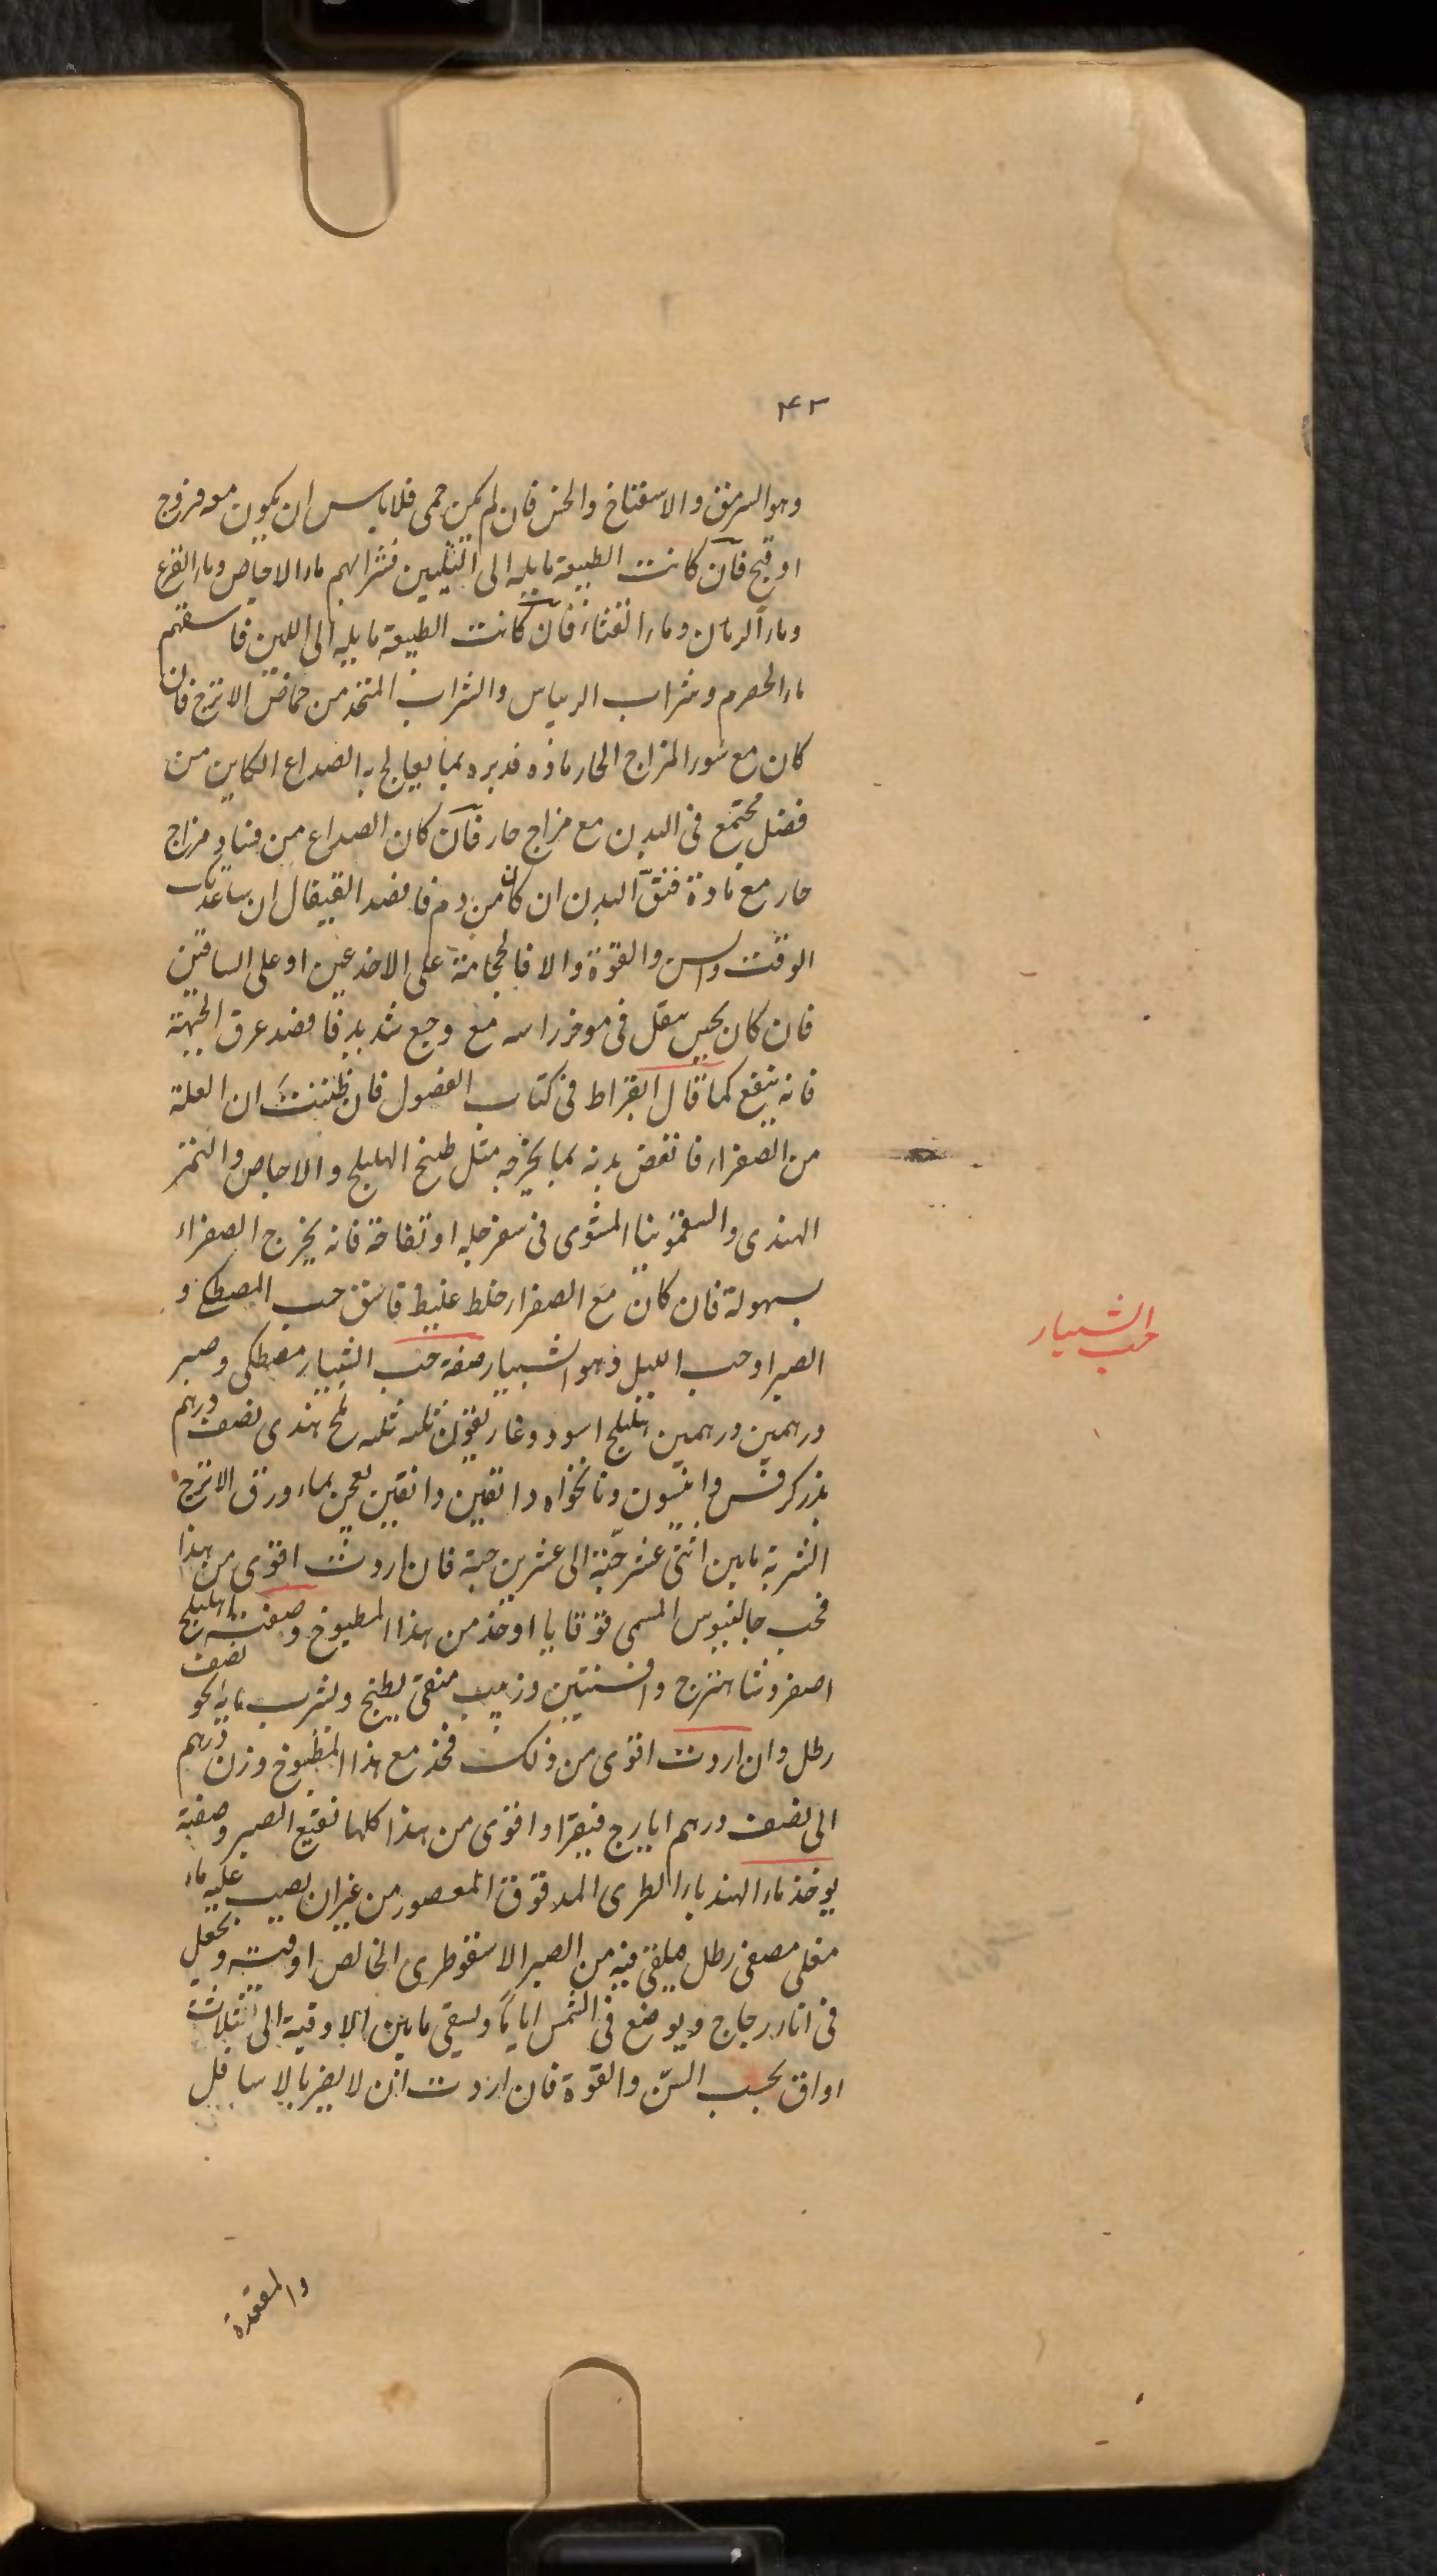 ۴۳
وهو السرمق والاسفناخ والخس فان لم يكن حمى فلا باس ان يكون معه فروج
او قبج فان كانت الطبيعة مايلة الى التليين فشرابهم ماء الاجاص وماء القرع
وماء الرمان وماء القثاء فان كانت الطبيعة مايلة الى اللين فاسقهم
ماء الحصرم وشراب الريباس والشراب المتخذ من حماض الاترج فان
كان مع سوء المزاج الحار مادة فدبره بما يعالج به الصداع الكاين من
فضل مجتمع فى البدن مع مزاج حار فان كان الصداع من فساد مزاج
حار مع مادة فنق البدن ان كان من دم فافصد القيفال ان ساعدك
الوقت والسن والقوة والا فالحجامة على الاخدعين او على الساقين
فان كان يحس بثقل فى موخر راسه مع وجع شديد فافصد عرق الجبهة
فانه ينفع كما قال ابقراط فى كتاب الفصول فان ظننت ان العلة
من الصفراء فانفض بدنه بما يخرجه مثل طبخ الهليلج والاجاص والتمر
الهندى والسقمونيا المشوى فى سفرجله او تفاحة فانه يخرج الصفراء
بسهولة فان كان مع الصفراء خلط غليظ فاسق حب المصطكى و
الصبر او حب الليل وهو الشبيار صفة حب الشبيار مصطكى وصبر
درهمين درهمين هليلج اسود وغاريقون ثلثه ثلثه ملح هندى نصف درهم
بزر كرفس وانيسون ونانخواه دانقين دانقين يعجن بماء ورق الاترج
الشربة مابين اثنى عشر حبة الى عشرين حبة فان اردت اقوى من هذا
فحب جالينوس المسمى قوقايا او خذ من هذا المطبوخ وصفته هليلج
اصفر وشاهترج وافسنتين وزبيب منقى يطبخ ويشرب مايه نحو نصف
رطل وان اردت اقوى من ذلك فخذ مع هذا المطبوخ وزن درهم
الى نصف درهم ايارج فيقرا واقوى من هذا كلها نقيع الصبر وصفته
يوخذ ماء الهندباء الطرى المدقوق المعصور من غير ان يصب عليه ماء
مغلى مصفى رطل فيلقى فيه من الصبر الاسقوطرى الخالص اوقيه ويجعل
فى اناء زجاج ويوضع فى الشمس اياما ويسقى مابين الاوقية الى ثلاث
اواق بحسب السن والقوة فان اردت ان لا يضر بالاسافل
والمقعدة
حب الشبيار